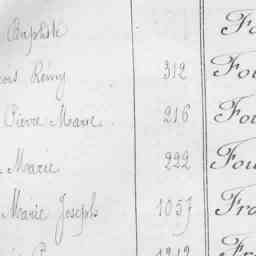 Baptiste Fo
ois Rémy 312 Fou
Pierre Marie 216 Fou
Marie 222 Fou
Marie Joseph 1057 Fra
1212 Fra